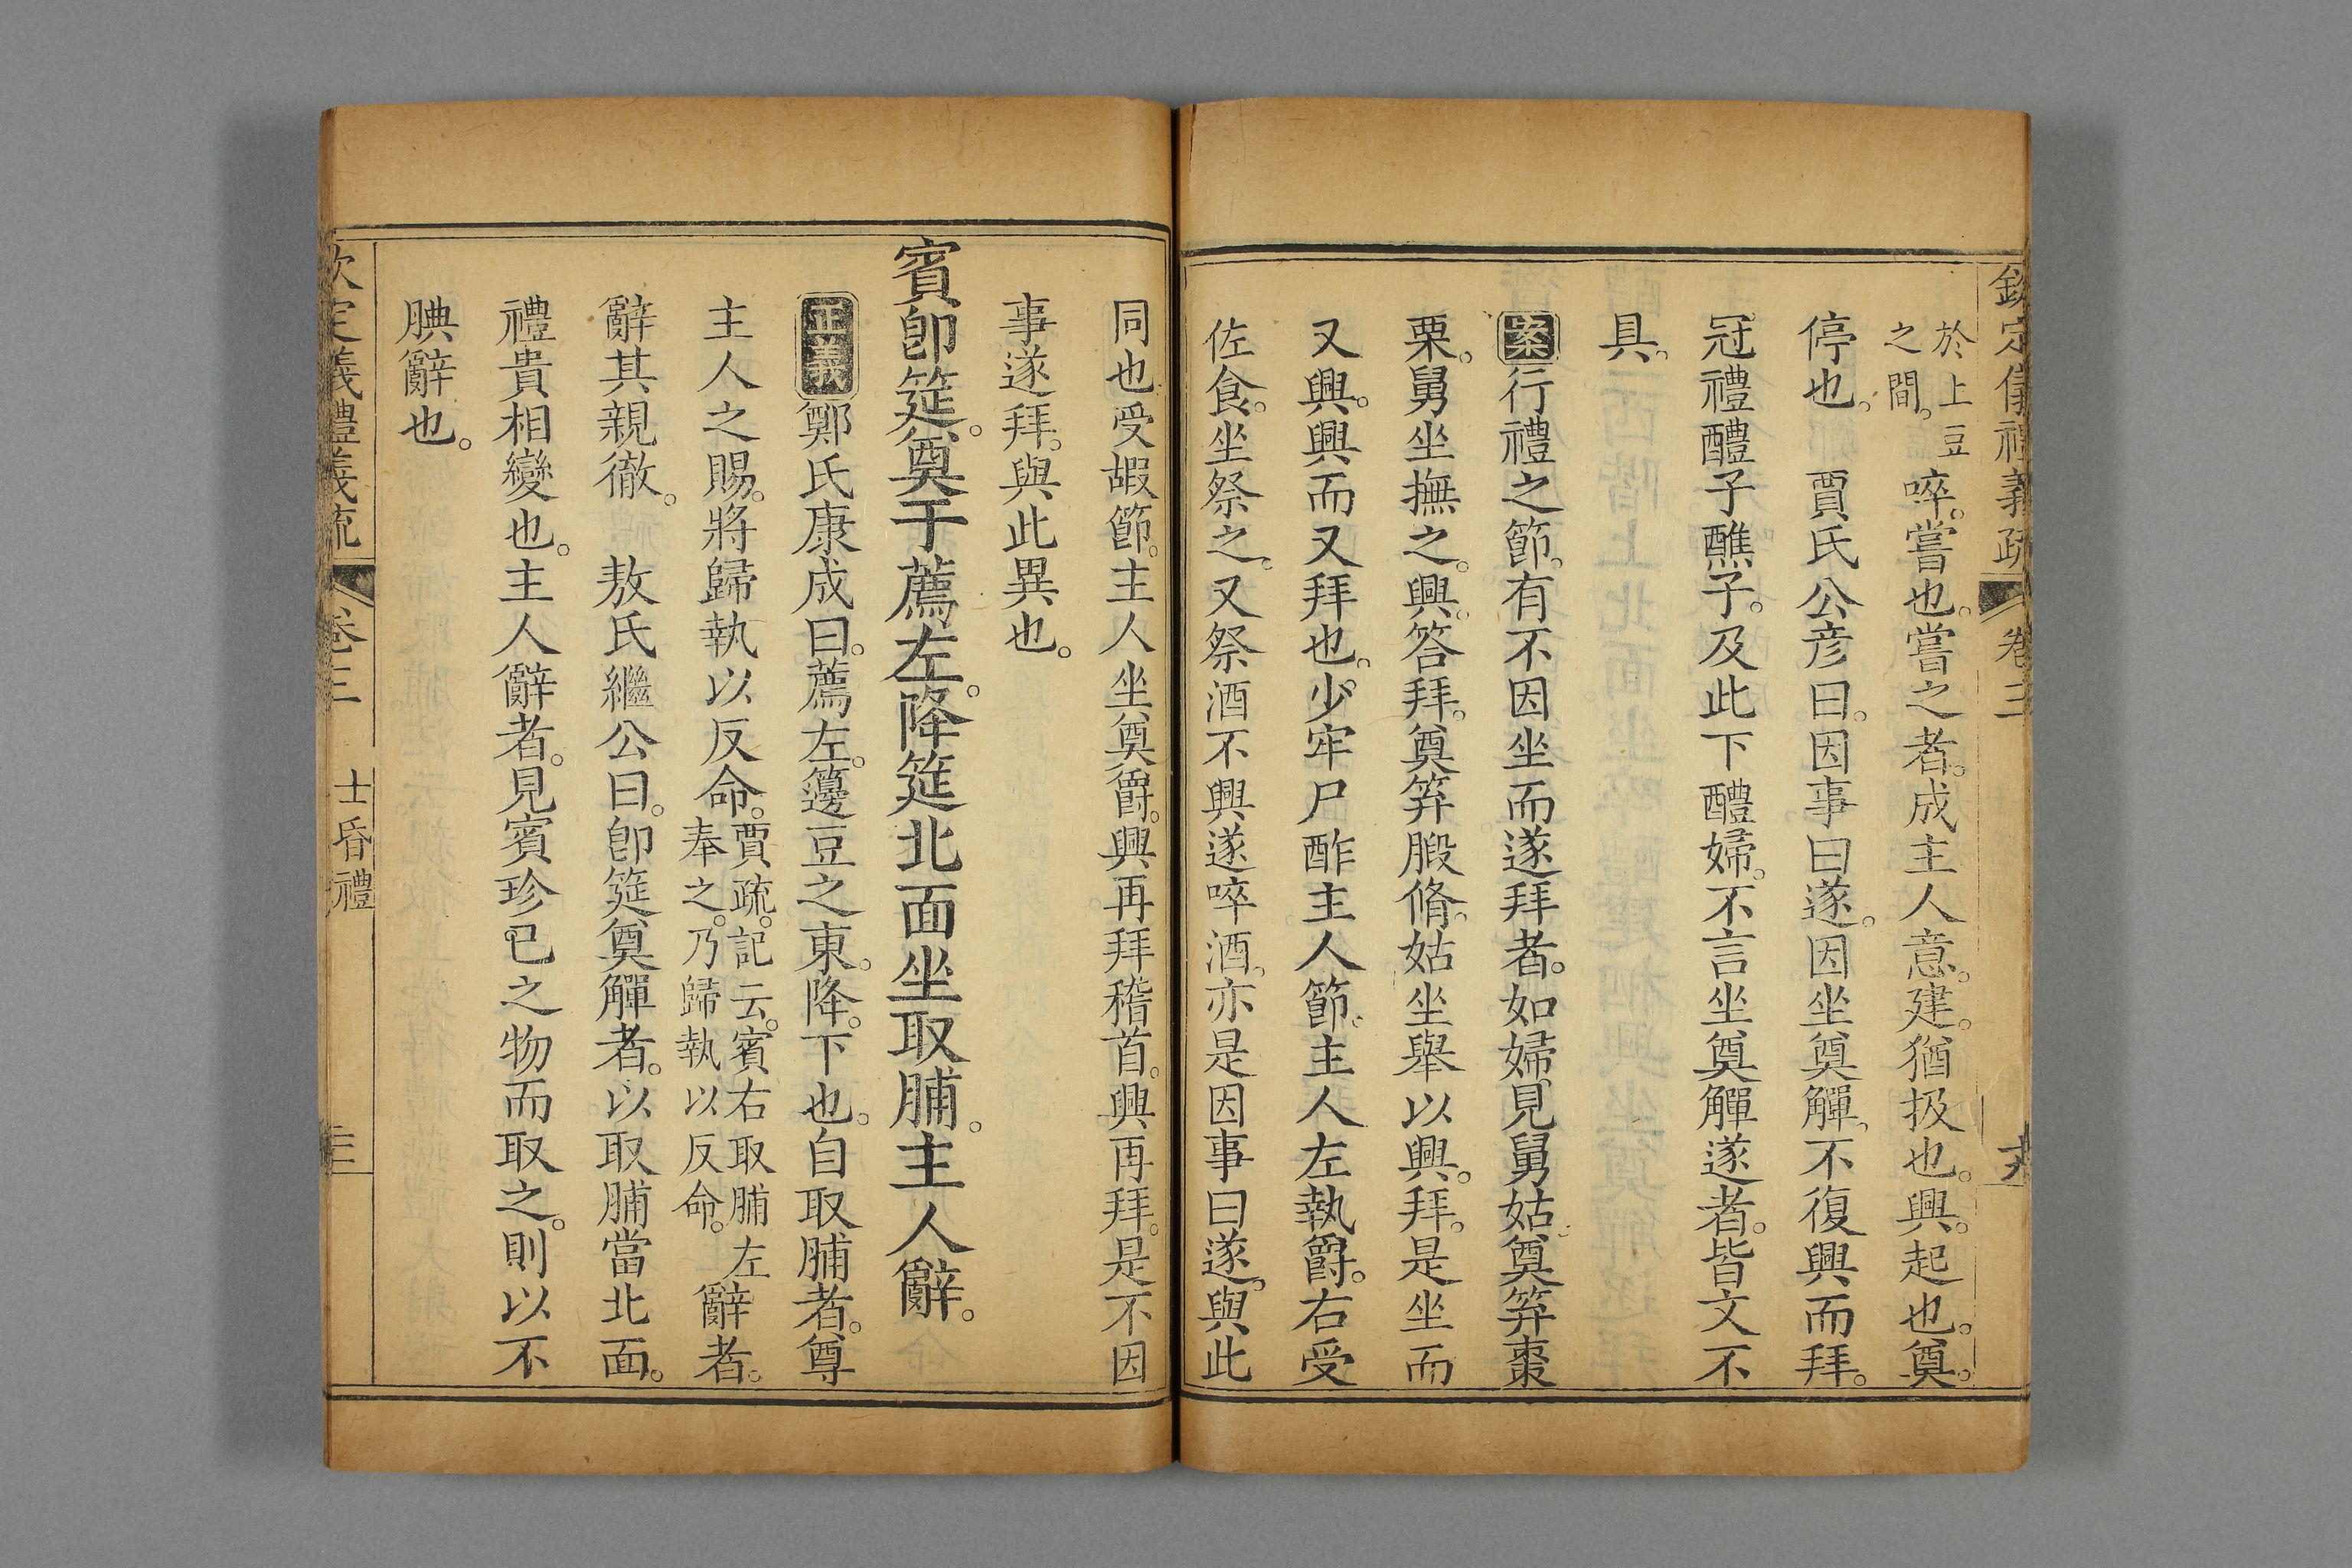 欽定儀禮義疏 卷三
於上豆之間。啐。嘗也。嘗之者。成主人意。建。猶扱也。興。起也。奠。
停也。 賈氏公彦曰。因事曰遂。因坐奠觶。不復興而拜。
冠禮醴子醮子。及此下醴婦。不言坐奠觶遂者。皆文不
具。
案行禮之節。有不因坐而遂拜者。如婦見舅姑。奠笲棗
栗。舅坐撫之。興。答拜。奠笲腶脩。姑坐舉以興。拜。是坐而
又興。興而又拜也。少牢尸酢主人節。主人左執爵。右受
佐食。坐祭之。又祭酒不興遂啐酒。亦是因事曰遂。與此
同也受嘏節。主人坐奠爵。興再拜稽首。興再拜。是不因
事遂拜。與此異也。
賓卽筵。奠于薦左。降筵北面坐取脯。主人辭。
正義鄭氏康成曰。薦左。籩豆之東。降。下也。自取脯者。尊
主人之賜。將歸執以反命。賈疏。記云。賓右取脯左奉之。乃歸執以反命。辭者。
辭其親徹。 敖氏繼公曰。卽筵奠觶者。以取脯當北面。
禮貴相變也。主人辭者。見賓珍已之物而取之。則以不
腆辭也。
欽定義禮義疏 卷三 士昏禮